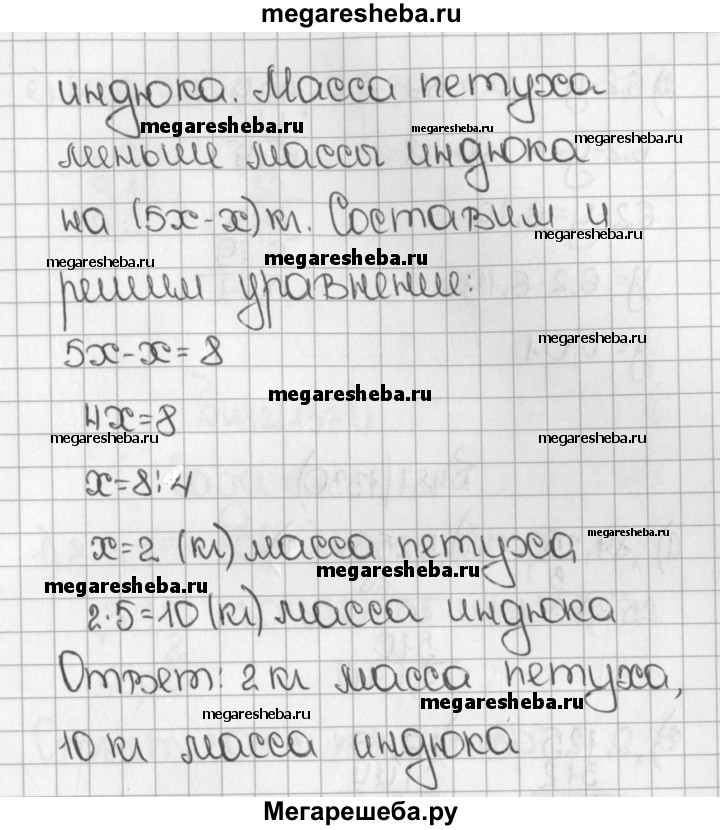 megaresheba.ru
индюка. Масса петуха
megaresheba.ru
megaresheba.ru
megaresheba.ru
меньше массы индюка
на (5x-x) кг. Составим и
megaresheba.ru
megaresheba.ru
megaresheba.ru
решим уравнение:
megaresheba.ru
5x-x=8
megaresheba.ru
4x=8
megaresheba.ru
megaresheba.ru
x=8:4
megaresheba.ru
x=2 (кг) масса петуха
megaresheba.ru
megaresheba.ru
2·5=10 (кг) масса индюка
Ответ: 2 кг масса петуха,
megaresheba.ru
megaresheba.ru
10 кг масса индюка
Мегарешеба.ру